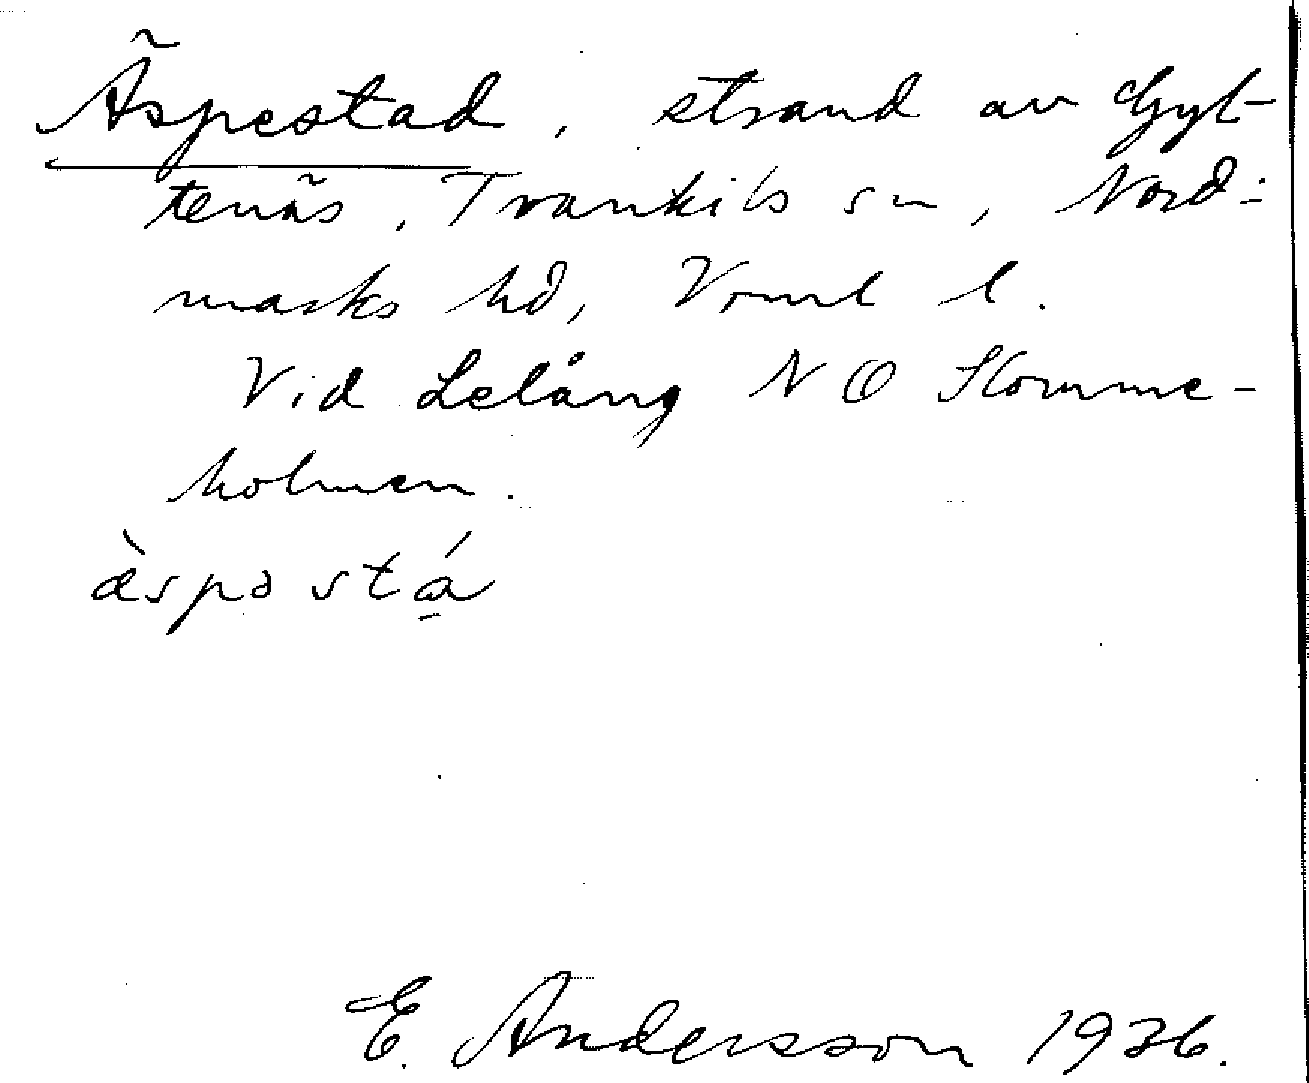 Äspestad, strand av Gyl-
tenäs, Trankils sn, Nord-
marks hd, Vrml l.
Vid Lelång NO Komme-
holmen.
æ̀spə stá̱
E. Andersson 1936.